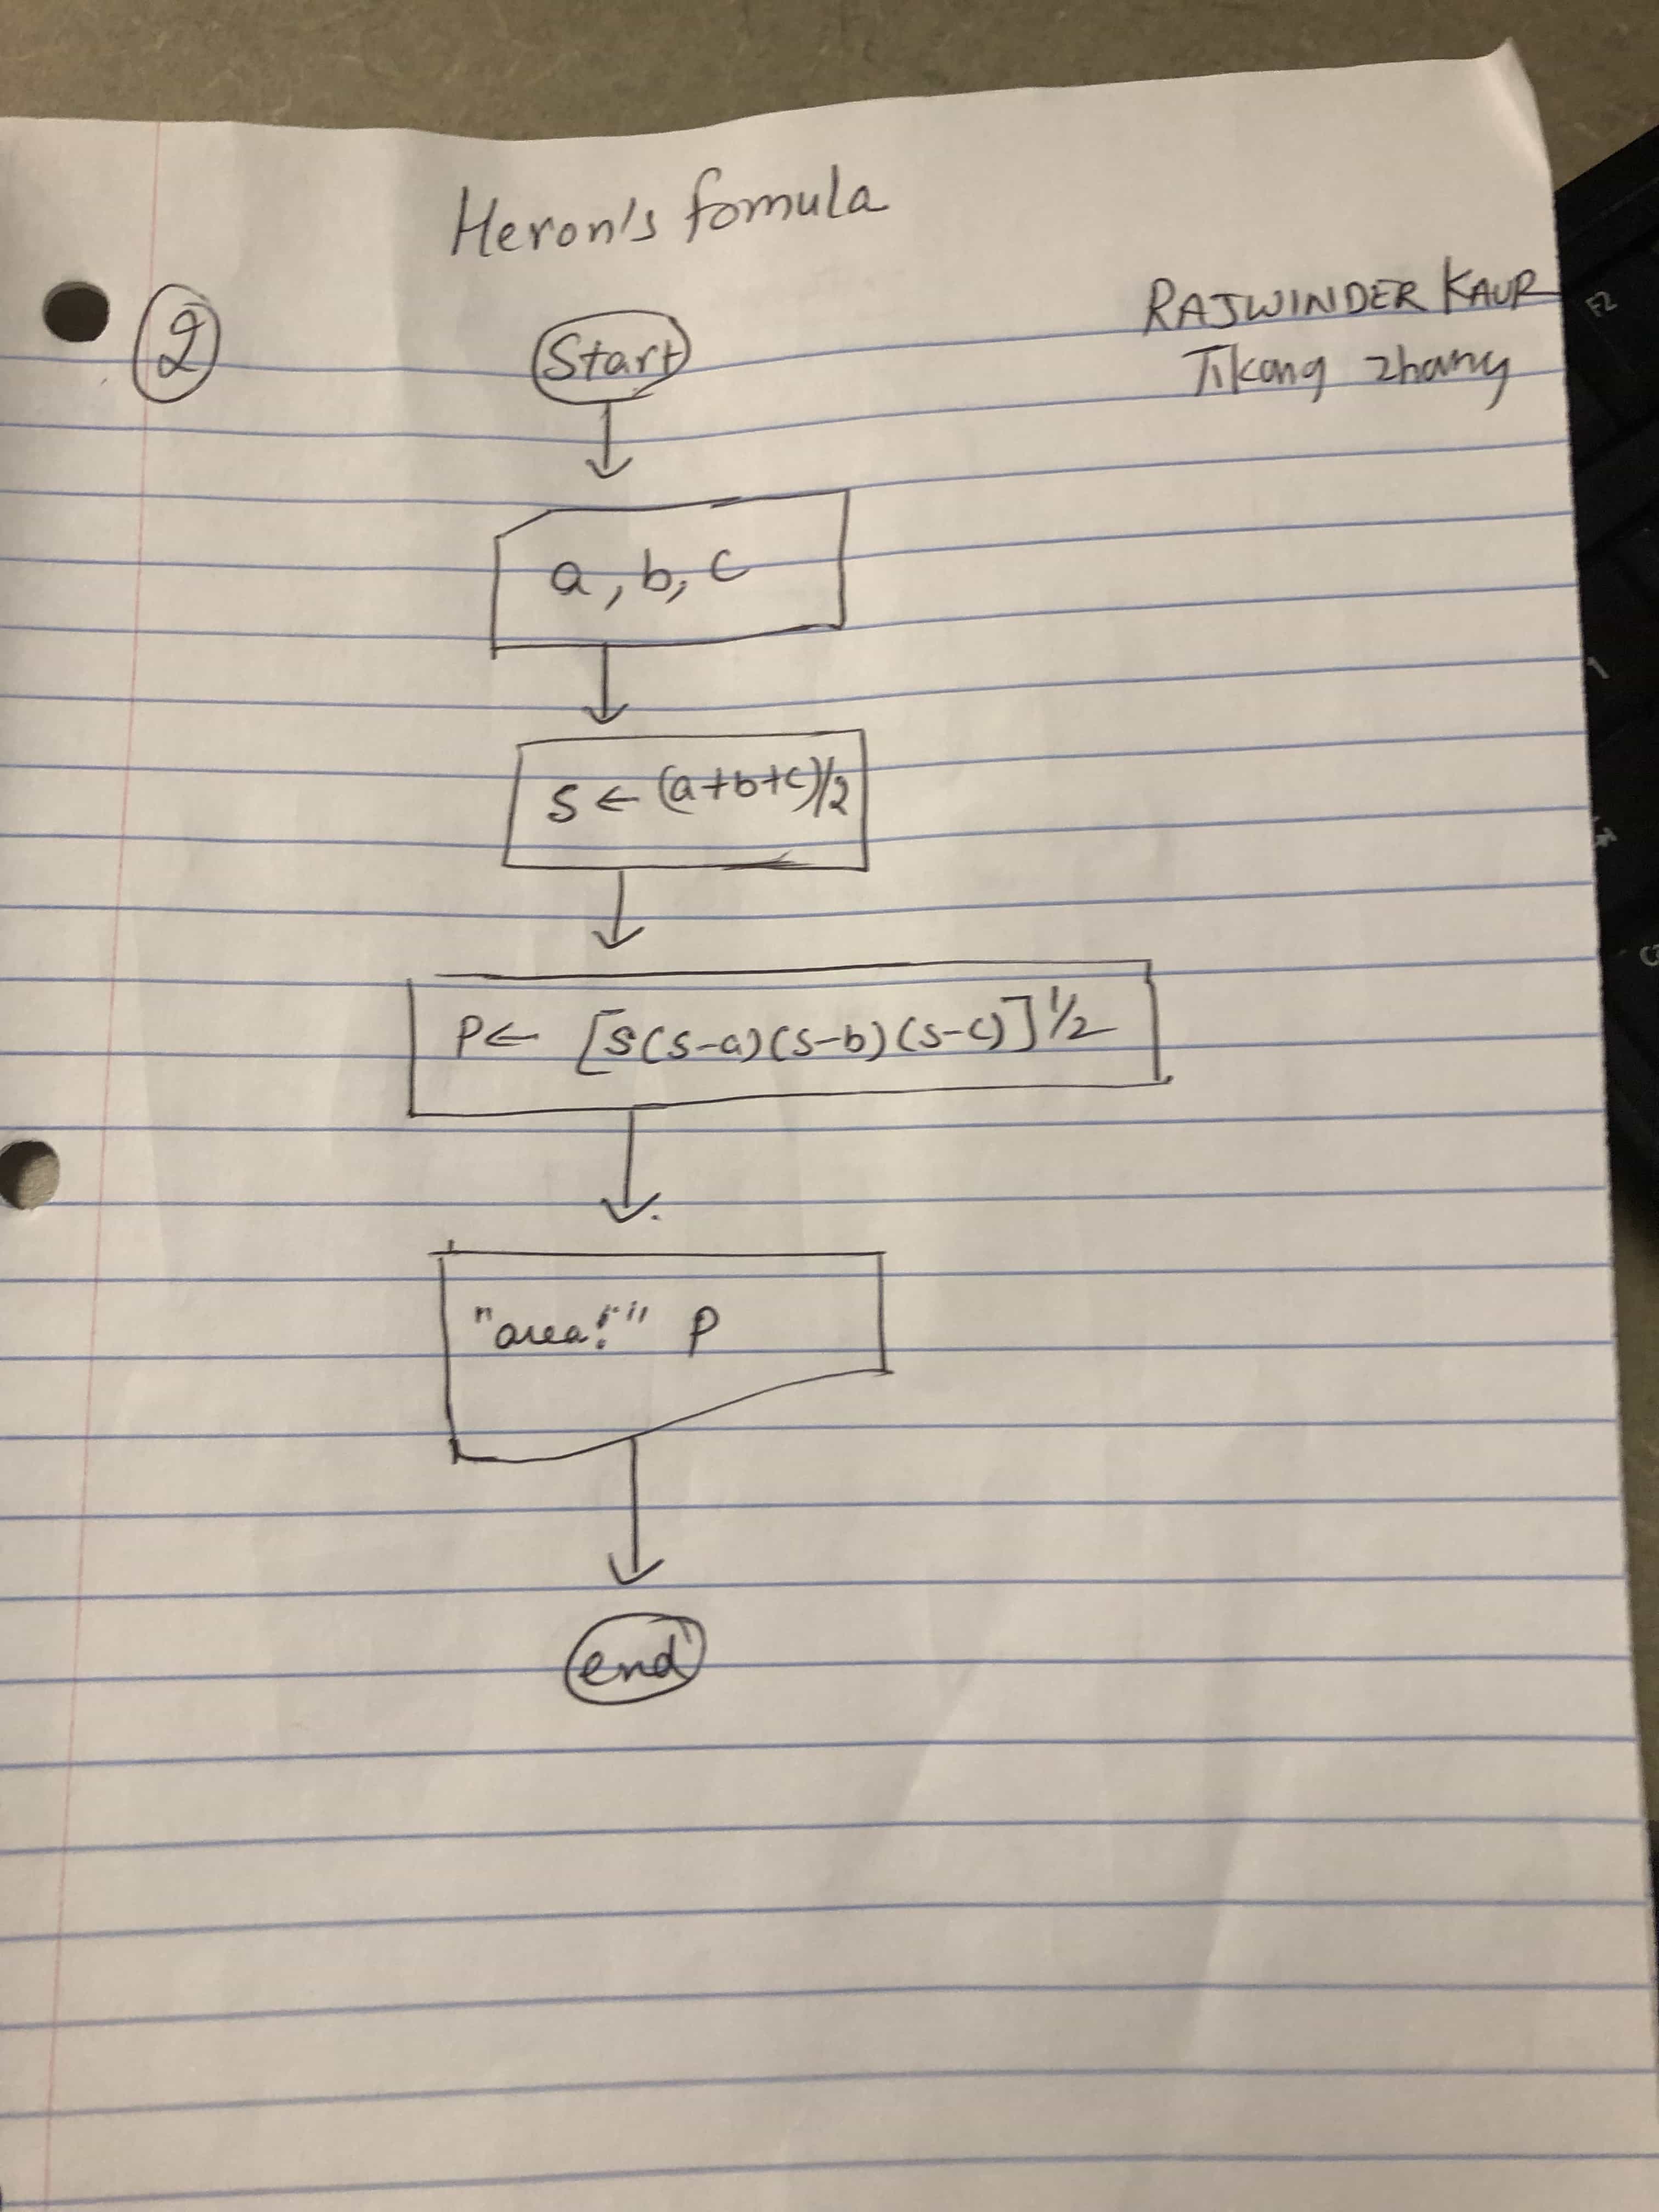 Heron's fomula
RAJWINDER KAUR
②
Start
Tikang zhang
a, b, c
S ← (a+b+c)/2
P ← [S(S-a)(S-b)(S-c)]^1/2
"area:" P
end
F2
1